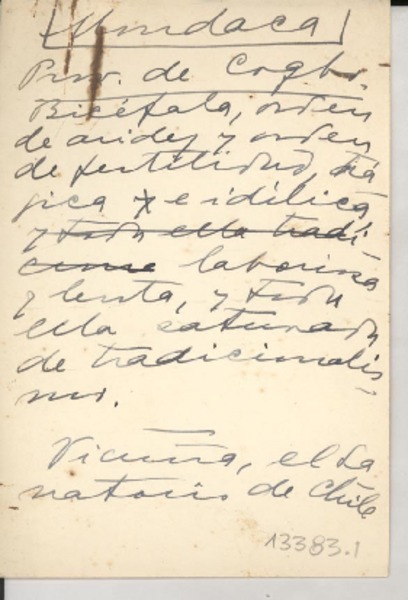 [Mondaca]
Prov. de Coqbo.
Bicéfala, orden
de aridez y orden
de fertilidad, trá
gica y e idílica,
y toda ella tradi
cional laboriosa
y lenta, y toda
ella saturada
de tradicionalis
mo.
Vicuña, el Sa
natorio de Chile
13383.1